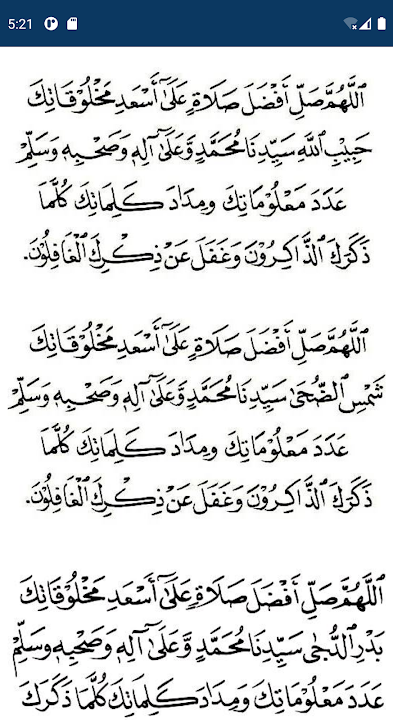 5:21
اَللَّهُمَّ صَلِّ أَفْضَلَ صَلَاةٍ عَلَىٰٓ أَسْعَدِ مَخْلُوْقَاتِكَ
حَبِيْبِ اللّٰهِ سَيِّدِنَا مُحَمَّدٍ وَّعَلَىٰٓ آلِهٖ وَصَحْبِهٖ وَسَلِّمْ
عَدَدَ مَعْلُوْمَاتِكَ وَمِدَادَ كَلِمَاتِكَ كُلَّمَا
ذَكَرَكَ الذَّاكِرُوْنَ وَغَفَلَ عَنْ ذِكْرِكَ الْغَافِلُوْنَ.
اَللَّهُمَّ صَلِّ أَفْضَلَ صَلَاةٍ عَلَىٰٓ أَسْعَدِ مَخْلُوْقَاتِكَ
شَمْسِ الضُّحَىٰ سَيِّدِنَا مُحَمَّدٍ وَّعَلَىٰٓ آلِهٖ وَصَحْبِهٖ وَسَلِّمْ
عَدَدَ مَعْلُوْمَاتِكَ وَمِدَادَ كَلِمَاتِكَ كُلَّمَا
ذَكَرَكَ الذَّاكِرُوْنَ وَغَفَلَ عَنْ ذِكْرِكَ الْغَافِلُوْنَ.
اَللَّهُمَّ صَلِّ أَفْضَلَ صَلَاةٍ عَلَىٰٓ أَسْعَدِ مَخْلُوْقَاتِكَ
بَدْرِ الدُّجَىٰ سَيِّدِنَا مُحَمَّدٍ وَّعَلَىٰٓ آلِهٖ وَصَحْبِهٖ وَسَلِّمْ
عَدَدَ مَعْلُوْمَاتِكَ وَمِدَادَ كَلِمَاتِكَ كُلَّمَا ذَكَرَكَ